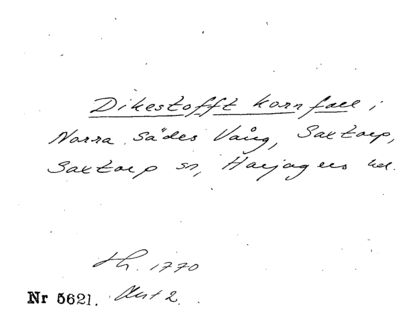 Dikestofft kornfall i
Norra Sädes Vång, Saxtorp,
Saxtorp sn, Harjagers hd.
1770
Nr 5621. Akt 2.